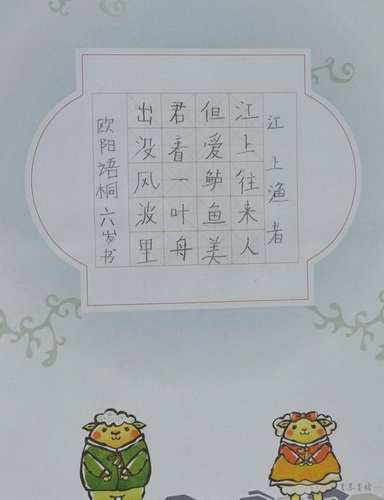 江上渔者
江上往来人
但爱鲈鱼美
君看一叶舟
出没风波里
欧阳语桐六岁书